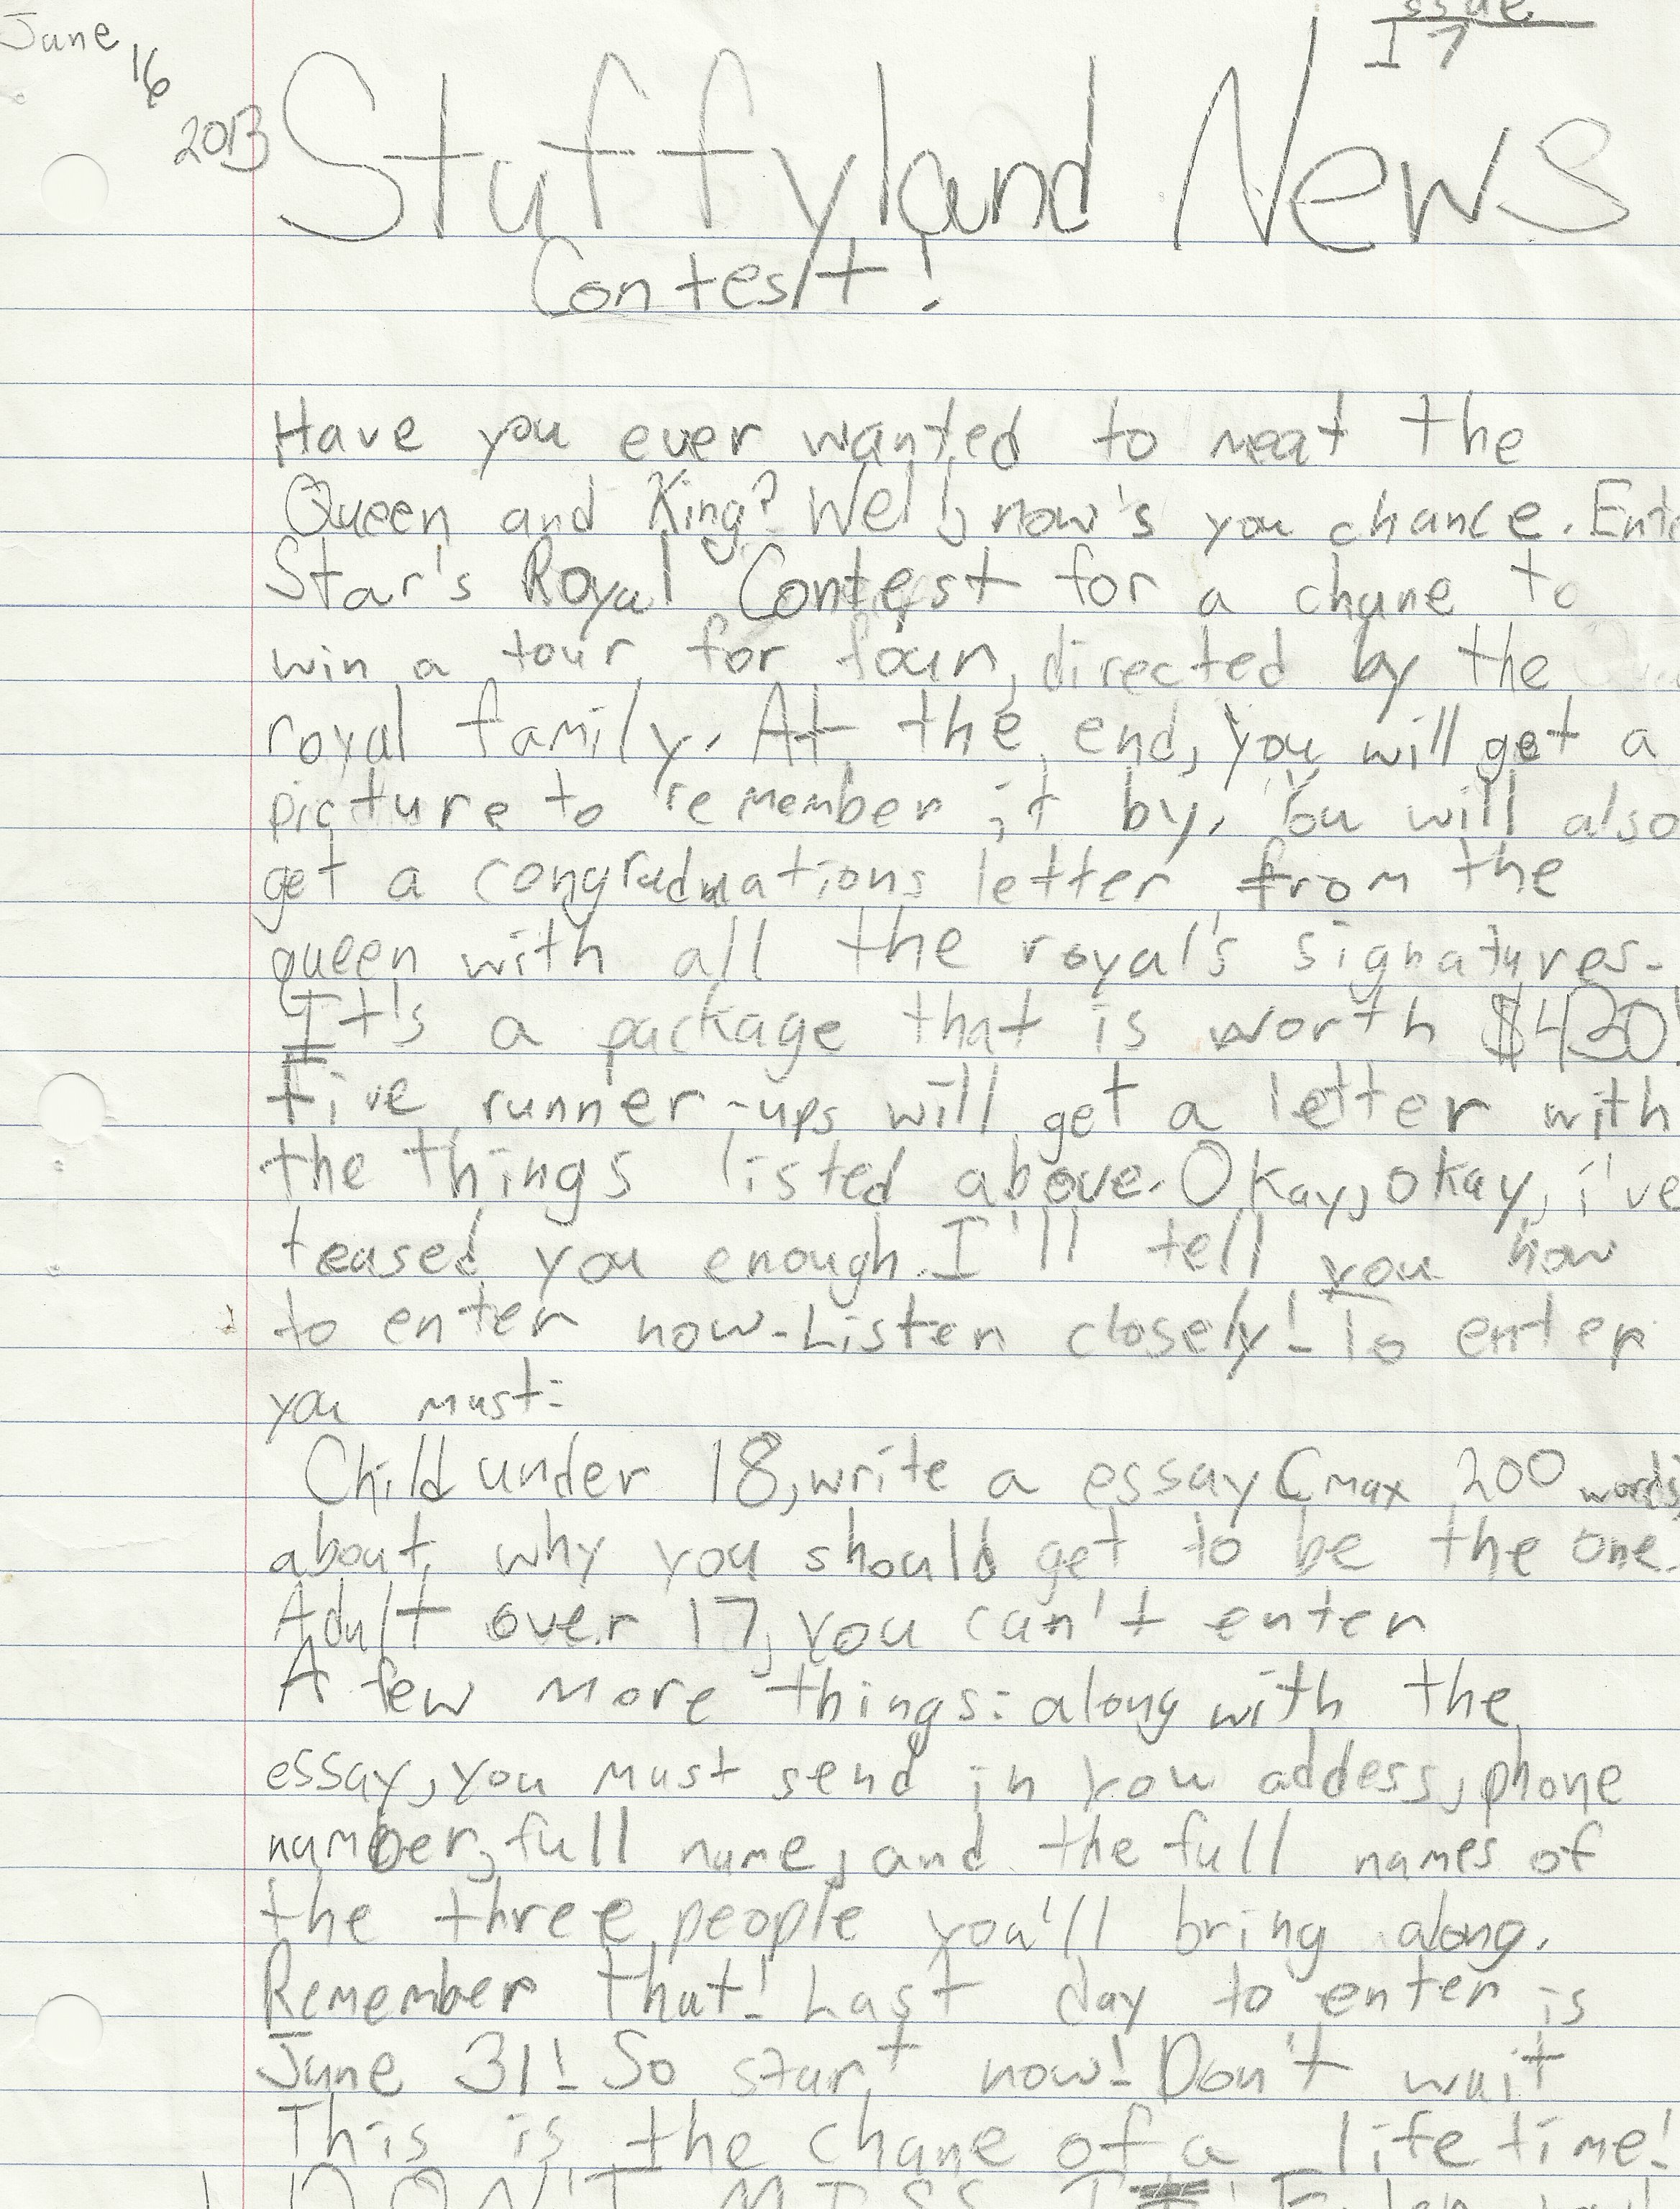 June 16 2013
Issue 17
Stuffyland News
Contest!
Have you ever wanted to meat the
Queen and King? Well, now's you chance. Ente
Star's Royal Contest for a chane to
win a tour for four, directed by the
royal family. At the end, you will get a
picture to remember it by. You will also
get a congraduations letter from the
queen with all the royal's signatures.
It's a package that is worth $430!
Five runner-ups will get a letter with
the things listed above. Okay, okay, i've
teased you enough. I'll tell you how
to enter now. Listen closely! To enter
you must:
Child under 18, write a essay (max 200 words)
about why you should get to be the one.
Adult over 17, you can't enter
A few more things: along with the
essay, you must send in you addess, phone
number, full name, and the full names of
the three people you'll bring along.
Remember that! Last day to enter is
June 31! So start now! Don't wait
This is the chane of a life time!
DON'T MISS IT!